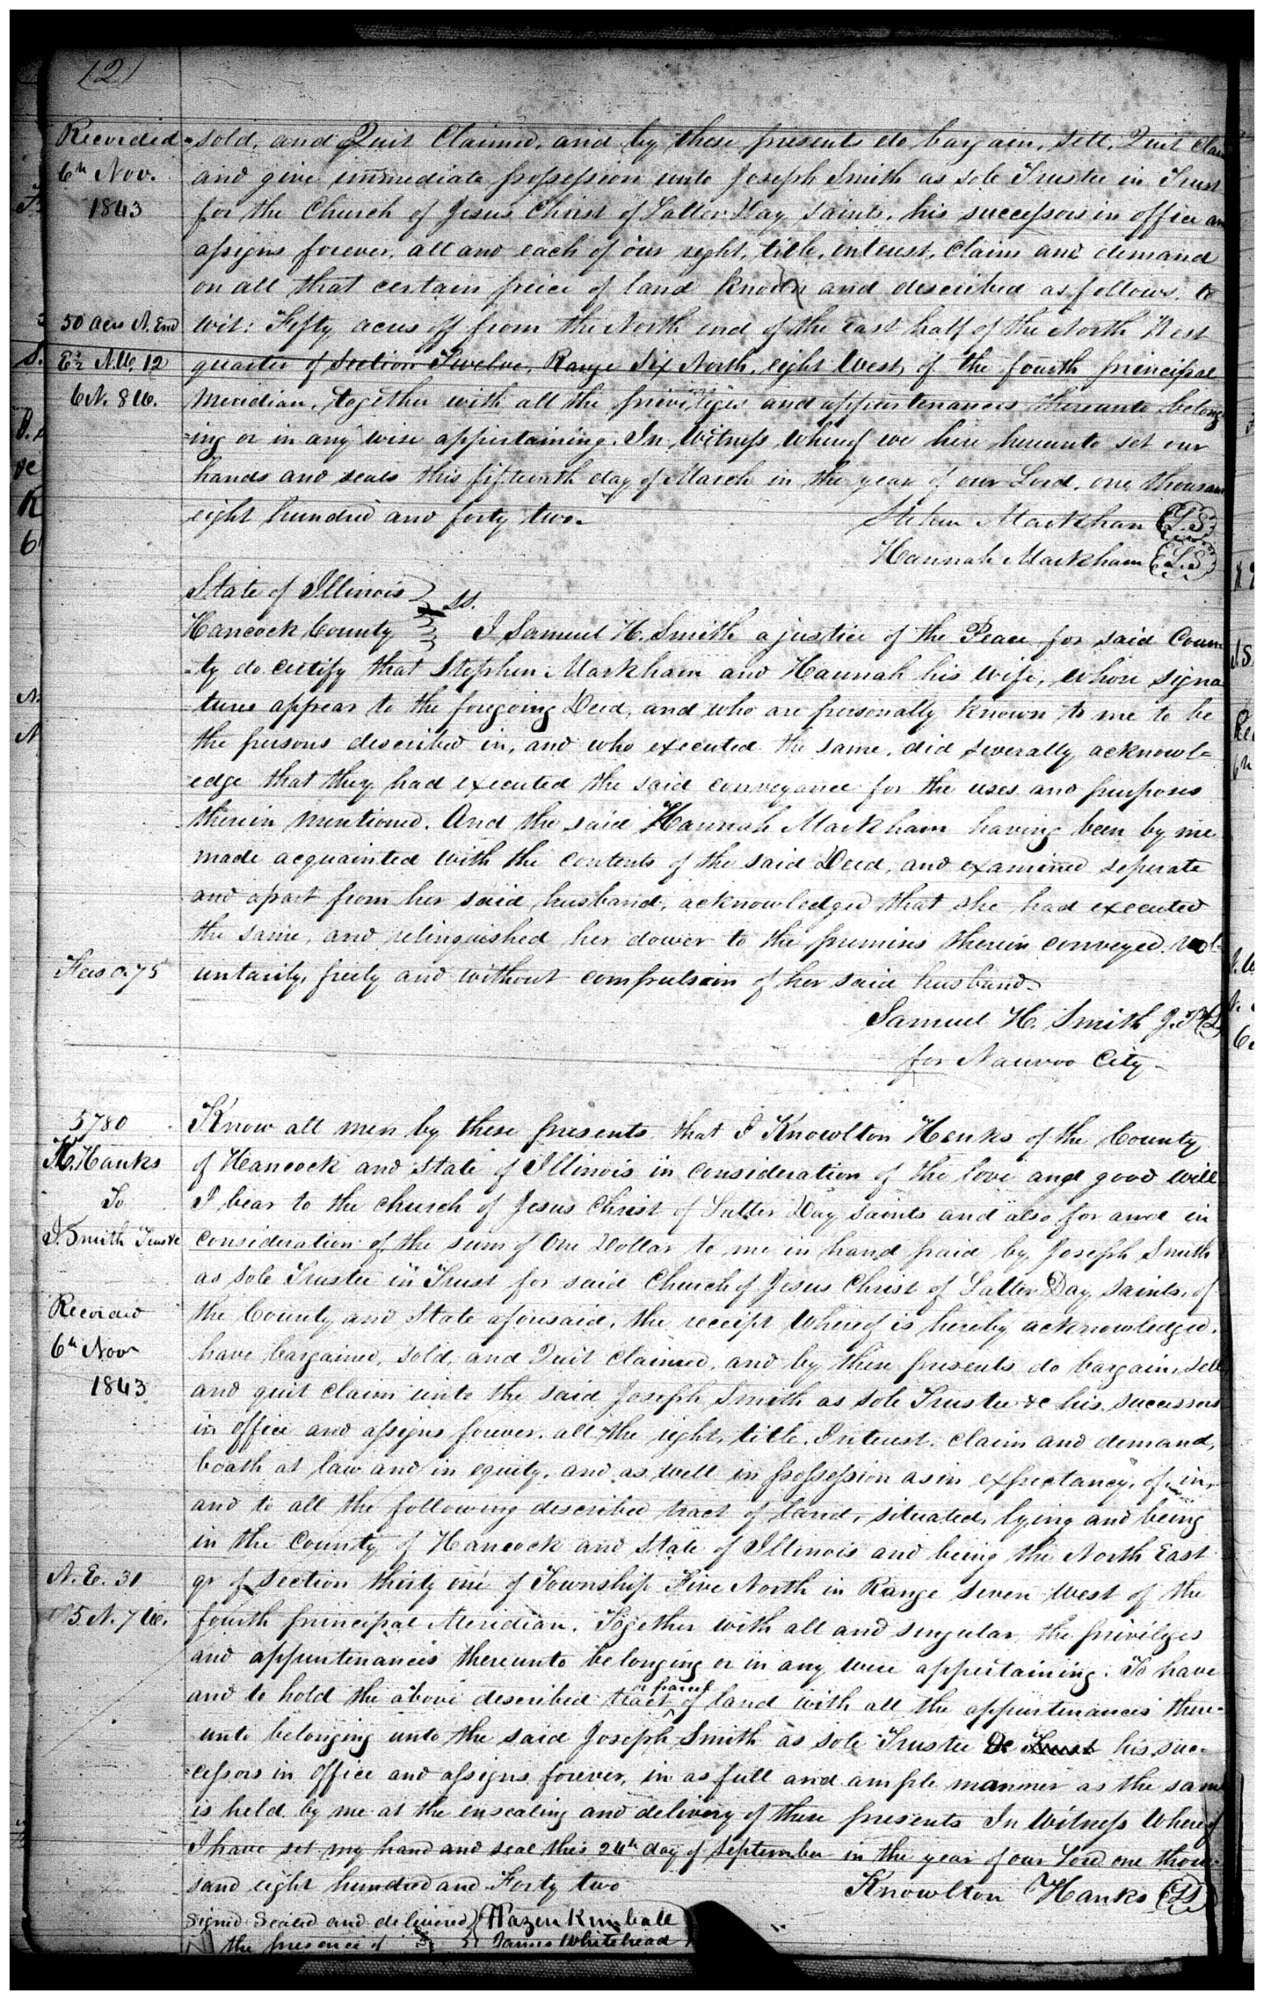 (2)
Recorded
6th Nov.
1843
sold, and Quit Claimed, and by these presents do bargain, sell, Quit Claim
and give immediate possession unto Joseph Smith as sole Trustee in Trust
for the Church of Jesus Christ of Latter Day Saints, his successors in office an
assigns forever, all and each of our right, title, interest, claim and demand
on all that certain piece of land known and described as follows, to
50 acres N. End
wit: Fifty acres off from the North end of the East half of the North West
E½ N.W. 12
quarter of Section Twelve, Range Six North, eight West, of the fourth principal
6 N. 8 W.
Meridian, together with all the priviliges and appurtenances thereunto belong-
-ing or in any wise appertaining. In Witness whereof we here hereunto set our
hands and seals this fifteenth day of March in the year of our Lord, one thousan
eight hundred and forty two.
Stephen Markham (L.S)
Hannah Markham (L.S)
State of Illinois
Hancock County } ss. I Samuel H. Smith a justice of the Peace for said Coun
-ty do certify that Stephen Markham and Hannah his wife, whose signa
tures appear to the foregoing Deed, and who are personally known to me to be
the persons described in, and who executed the same, did severally acknowl=
-edge that they had executed the said conveyance for the uses and purposes
therein mentioned. And the said Hannah Markham having been by me
made acquainted with the contents of the said Deed, and examined seperate
and apart from her said husband, acknowledged that she had executed
the same, and relinquished her dower to the premises therein conveyed, vol-
Fees 0.75
untarily, freely and without compulsion of her said husband.
Samuel H. Smith J.P.
for Nauvoo City-
5780
K. Hanks
To
J. Smith Trustee
Recorded
6th Nov
1843
Know all men by these presents that I Knowlton Hanks of the County
of Hancock and State of Illinois in consideration of the love and good will
I bear to the church of Jesus Christ of Latter Day Saints and also for and in
consideration of the sum of One Dollar to me in hand paid by Joseph Smith
as sole Trustee in Trust for said Church of Jesus Christ of Latter Day Saints, of
the County and State aforesaid, the receipt whereof is hereby acknowledged,
have bargained, sold, and Quit Claimed, and by these presents do bargain, sell
and quit claim unto the said Joseph Smith as sole Trustee &c his successors
in office and assigns forever, all the right, title, Interest, claim and demand,
boath at law and in equity, and as well in possession as in expectancy, of, in,
and to all the following described tract of land, situated, lying and being
in the County of Hancock and State of Illinois and being the North East
N.E. 31
qr of section thirty one of Township Five North in Range seven west of the
5 N. 7 W.
fourth principal Meridian. Together with all and singular, the privileges
and appurtenances thereunto belonging or in any wise appertaining. To have
and to hold the above described tract or parcel of land with all the appurtenances there-
unto belonging unto the said Joseph Smith as sole Trustee &c Trust his suc-
-cessors in office and assigns forever, in as full and ample manner as the same
is held by me at the ensealing and delivery of these presents In Witness Whereof
I have set my hand and seal this 24th day of September in the year of our Lord one thou-
sand eight hundred and Forty two
Knowlton Hanks (LS)
Signed Sealed and delivered } Hazen Kimball
the presence of } James Whitehead